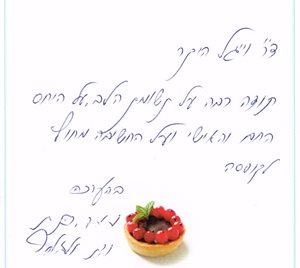 ד"ר ויגל היקר
תודה רבה על תשומת הלב, על היחס
החם והאישי ועל החשיבה מחוץ
לקופסה
בהערכה